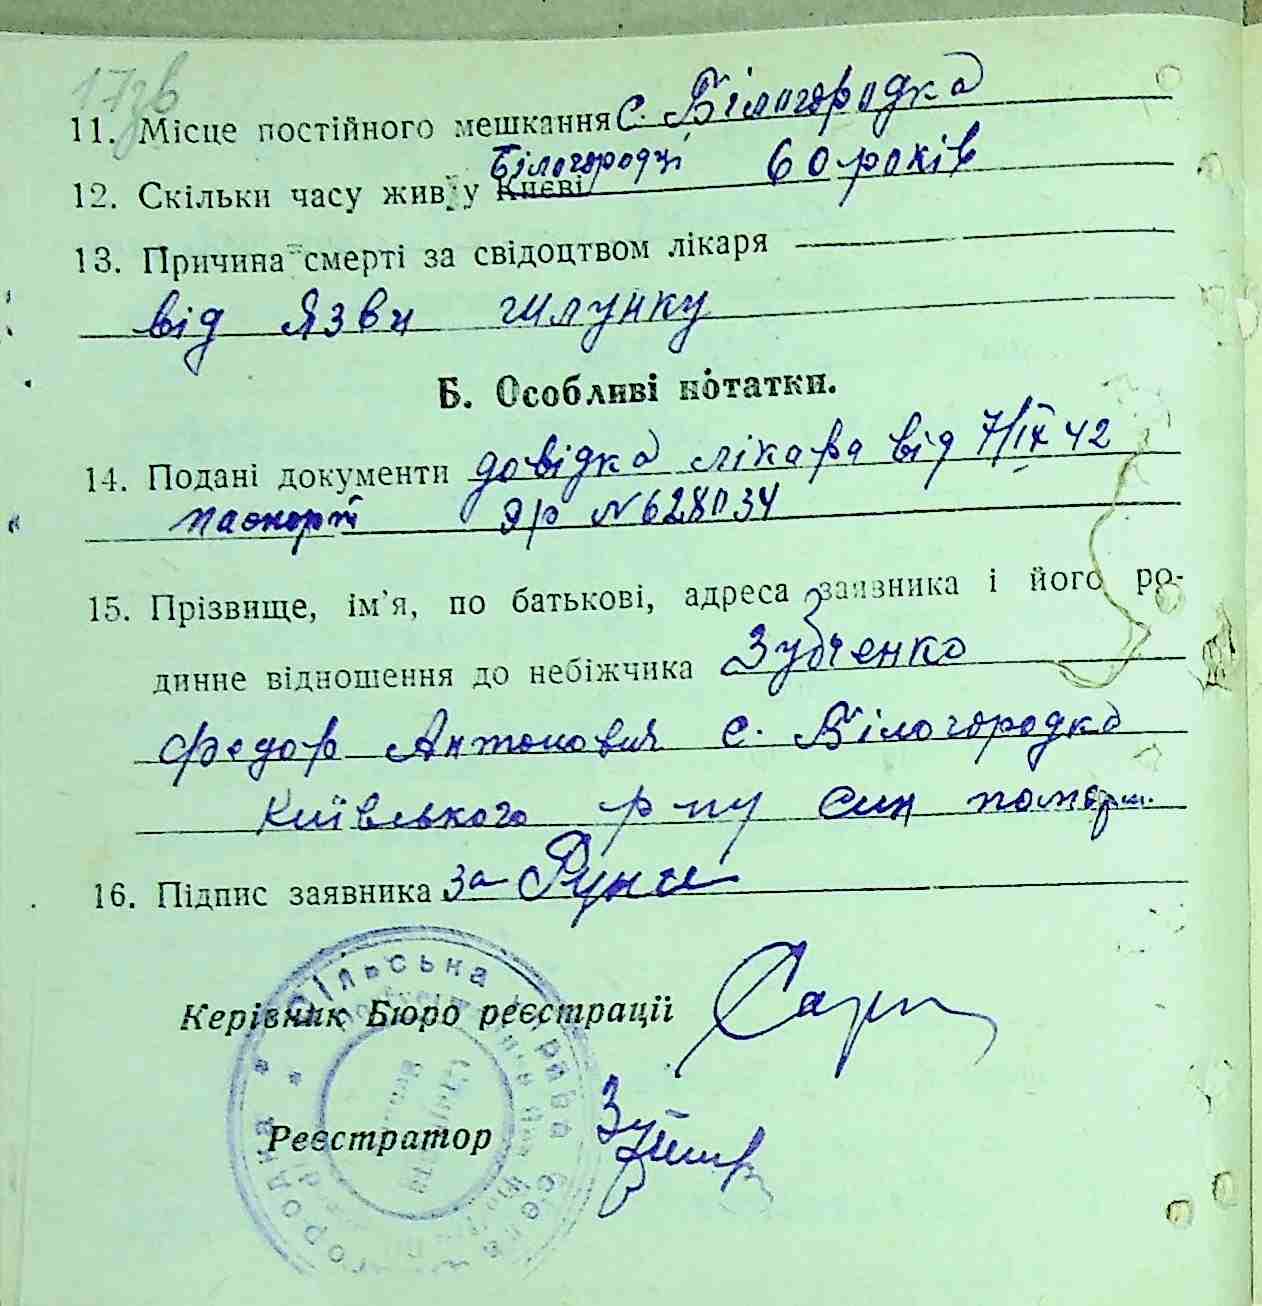 17зв
11. Місце постійного мешкання с. Білогородка
Білогородці
12. Скільки часу жив у Києві 60 років
13. Причина смерті за свідоцтвом лікаря
від язви шлунку
Б. Особливі нотатки.
14. Подані документи довідка лікара від 7/IX 42
паспорт ЯР №628034
15. Прізвище, ім'я, по батькові, адреса заявника і його ро-
динне відношення до небіжчика Зубченко
Федор Антонович с. Білогородка
Київського р-ну син померш.
16. Підпис заявника за
сільська управа села
Керівник Бюро реєстрації
Реєстратор
городка